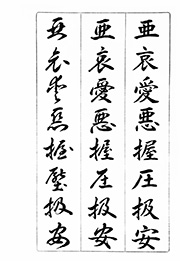 亜哀愛悪握圧扱安
亜哀愛悪握圧扱安
亜哀愛悪握壓扱安